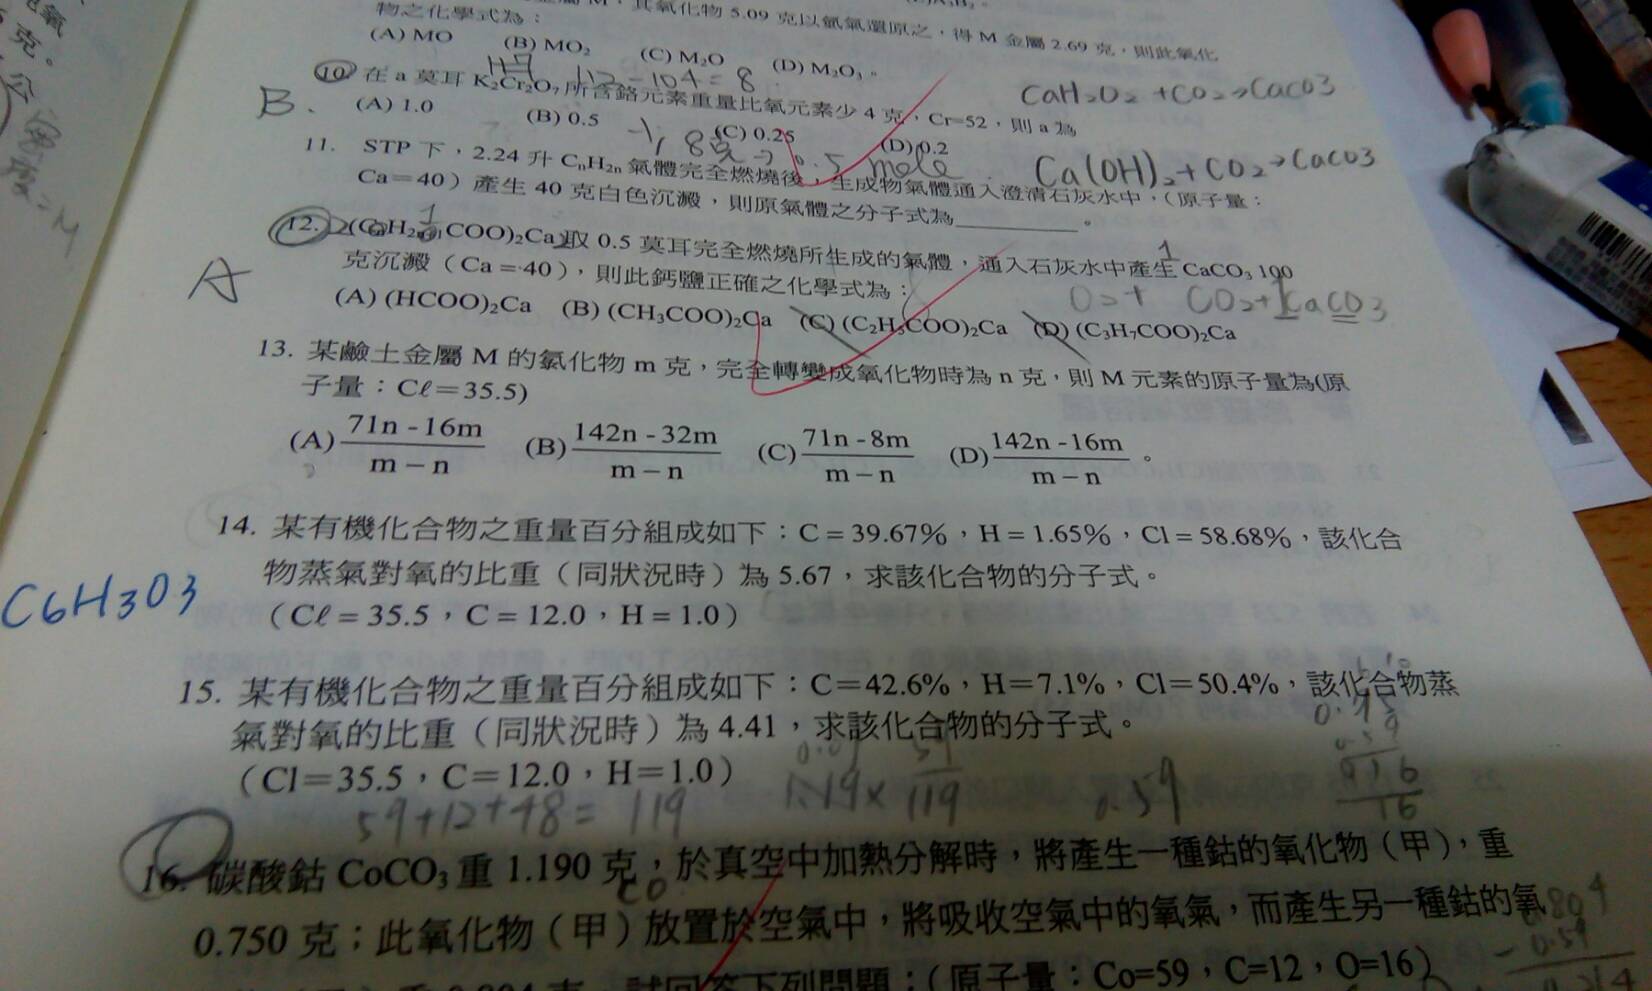 克。
M，其氧化物 5.09 克以氫氣還原之，得 M 金屬 2.69 克，則此氧化
物之化學式為：
(A) MO (B) MO₂ (C) M₂O (D) M₂O₃。
112 - 104 = 8
10. 在 a 莫耳 K₂Cr₂O₇ 所含鉻元素重量比氧元素少 4 克，Cr=52，則 a 為
B.
(A) 1.0 (B) 0.5 (C) 0.25 (D) 0.2
CaH₂O₂ + CO₂ → CaCO3
0.5 mole
Ca(OH)₂ + CO₂ → CaCO3
11. STP 下，2.24 升 CₙH₂ₙ 氣體完全燃燒後，生成物氣體通入澄清石灰水中，（原子量：
Ca＝40）產生 40 克白色沉澱，則原氣體之分子式為________。
12. COO)₂Ca 取 0.5 莫耳完全燃燒所生成的氣體，通入石灰水中產生 CaCO₃ 100
克沉澱（Ca = 40），則此鈣鹽正確之化學式為：
A
CO₂ + CaCO3
(A) (HCOO)₂Ca (B) (CH₃COO)₂Ca (C) (C₂H₅COO)₂Ca (D) (C₃H₇COO)₂Ca
13. 某鹼土金屬 M 的氯化物 m 克，完全轉變成氧化物時為 n 克，則 M 元素的原子量為(原
子量：Cℓ＝35.5)
(A) 71n - 16m / m − n (B) 142n - 32m / m − n (C) 71n - 8m / m − n (D) 142n - 16m / m − n 。
14. 某有機化合物之重量百分組成如下：C = 39.67%，H = 1.65%，Cl = 58.68%，該化合
物蒸氣對氧的比重（同狀況時）為 5.67，求該化合物的分子式。
（Cℓ = 35.5，C = 12.0，H = 1.0）
C6H3O3
15. 某有機化合物之重量百分組成如下：C＝42.6%，H＝7.1%，Cl＝50.4%，該化合物蒸
氣對氧的比重（同狀況時）為 4.41，求該化合物的分子式。
（Cl＝35.5，C＝12.0，H＝1.0）
59+12+48= 119
1.19× 59/119
0.59
16. 碳酸鈷 CoCO₃ 重 1.190 克，於真空中加熱分解時，將產生一種鈷的氧化物（甲），重
CO
0.750 克；此氧化物（甲）放置於空氣中，將吸收空氣中的氧氣，而產生另一種鈷的氧
試回答下列問題：（原子量：Co=59，C=12，O=16）